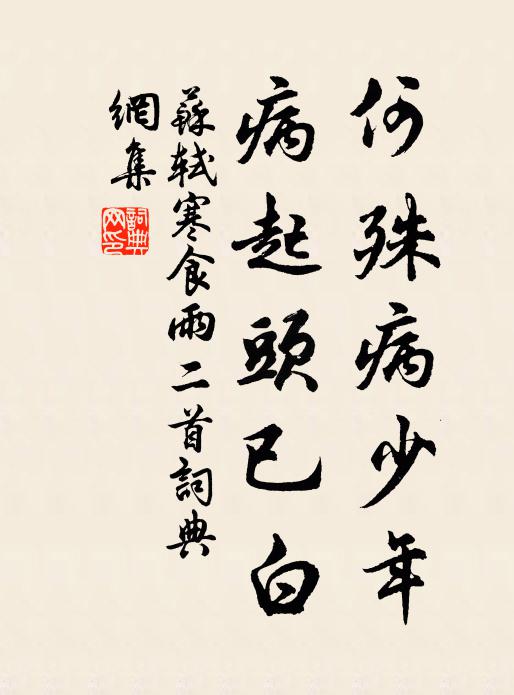 何殊病少年
病起頭已白
蘇軾寒食雨二首詞典
網集
詞典
网印